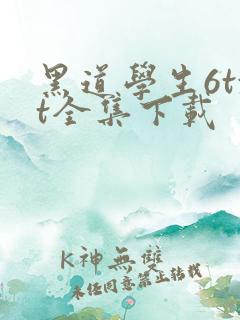 黑道學生6t
t全集下載
K神無雙
未經同意禁止轉載